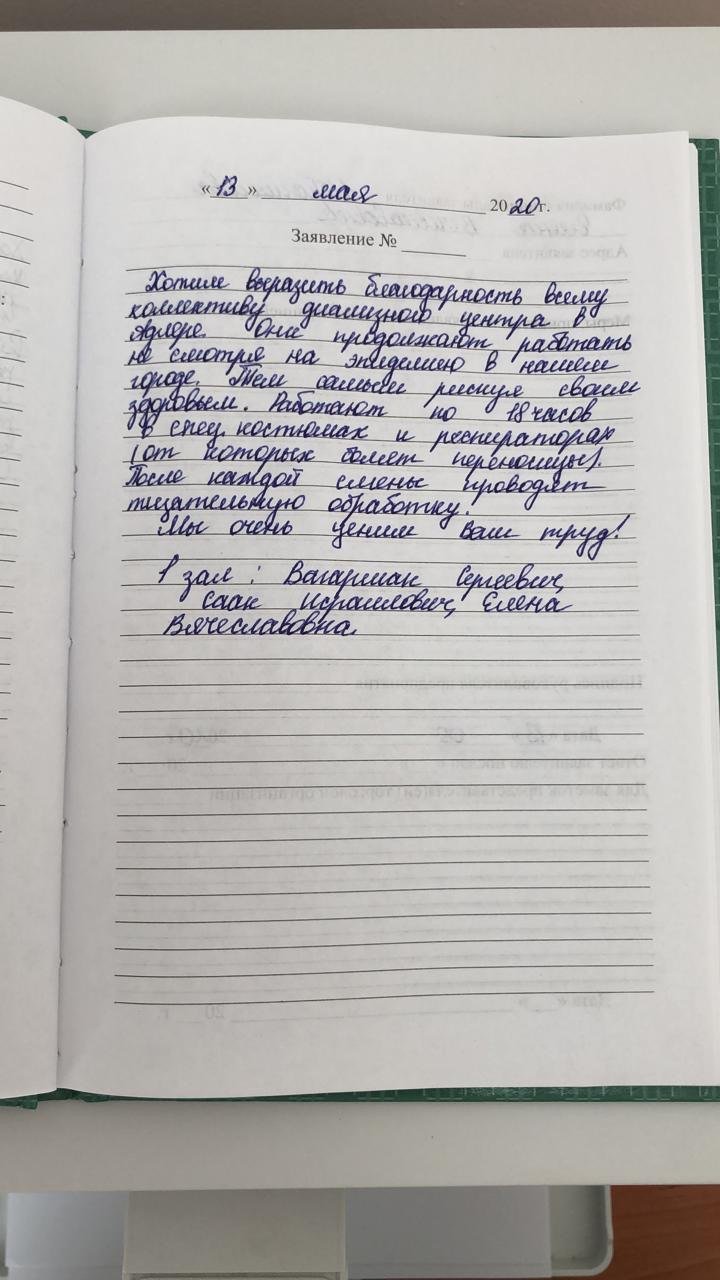 «13» мая 2020г.
Заявление №
Хотим выразить благодарность всему
коллективу диализного центра в
Адлере. Они продолжают работать
не смотря на эпидемию в нашем
городе. Тем самым рискуя своим
здоровьем. Работают по 18 часов
в спец. костюмах и респираторах
(от которых болят переносицы).
После каждой смены проводят
тщательную обработку.
Мы очень ценим Ваш труд!
1 зал: Вагаршак Сергеевич,
Саак Исраилович, Елена
Вячеславовна.